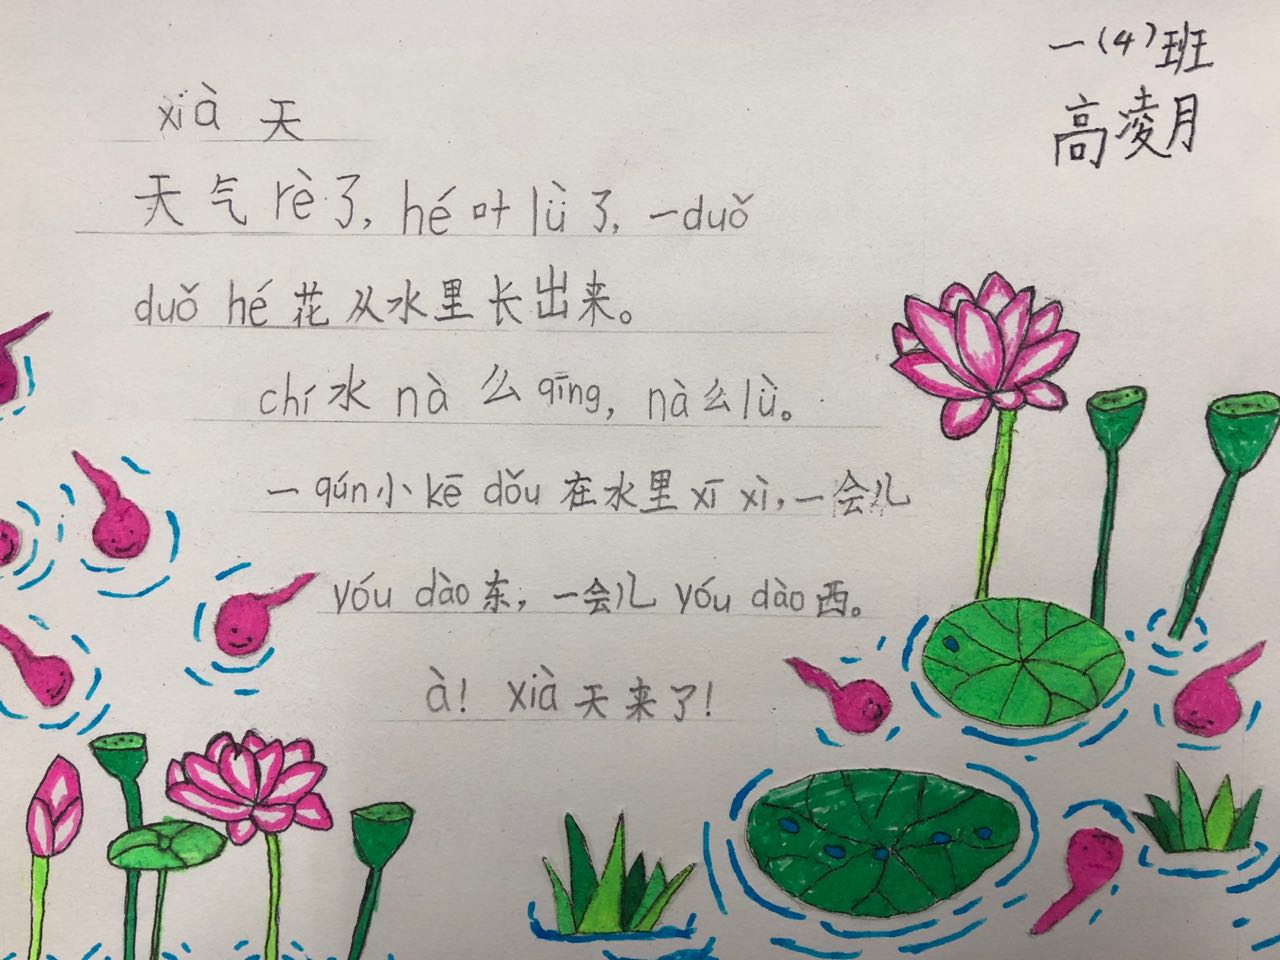 一(4)班
高凌月
xià 天
天气 rè了, hé叶 lǜ了, 一duǒ
duǒ hé 花从水里长出来。
chí水 nà 么 qīng, nà么lǜ。
一 qún小 kē dǒu 在水里 xī xì, 一会儿
yóu dào 东, 一会儿 yóu dào 西。
à! xià 天来了!